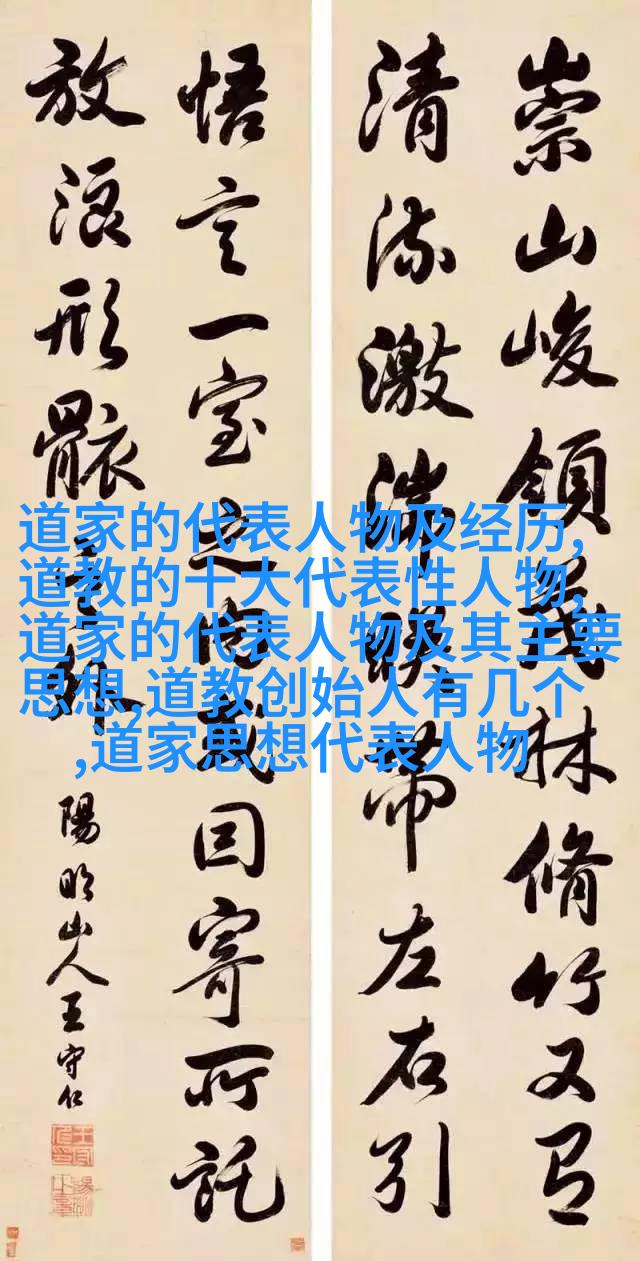 崇山峻領茂林脩竹又有
清流激湍暎帶左右引
悟言一室之内或因寄所託
放浪形骸之外
陽明山人王守仁
道家的代表人物及经历,
道教的十大代表性人物,
道家的代表人物及其主要
思想,道教创始人有几个
,道家思想代表人物